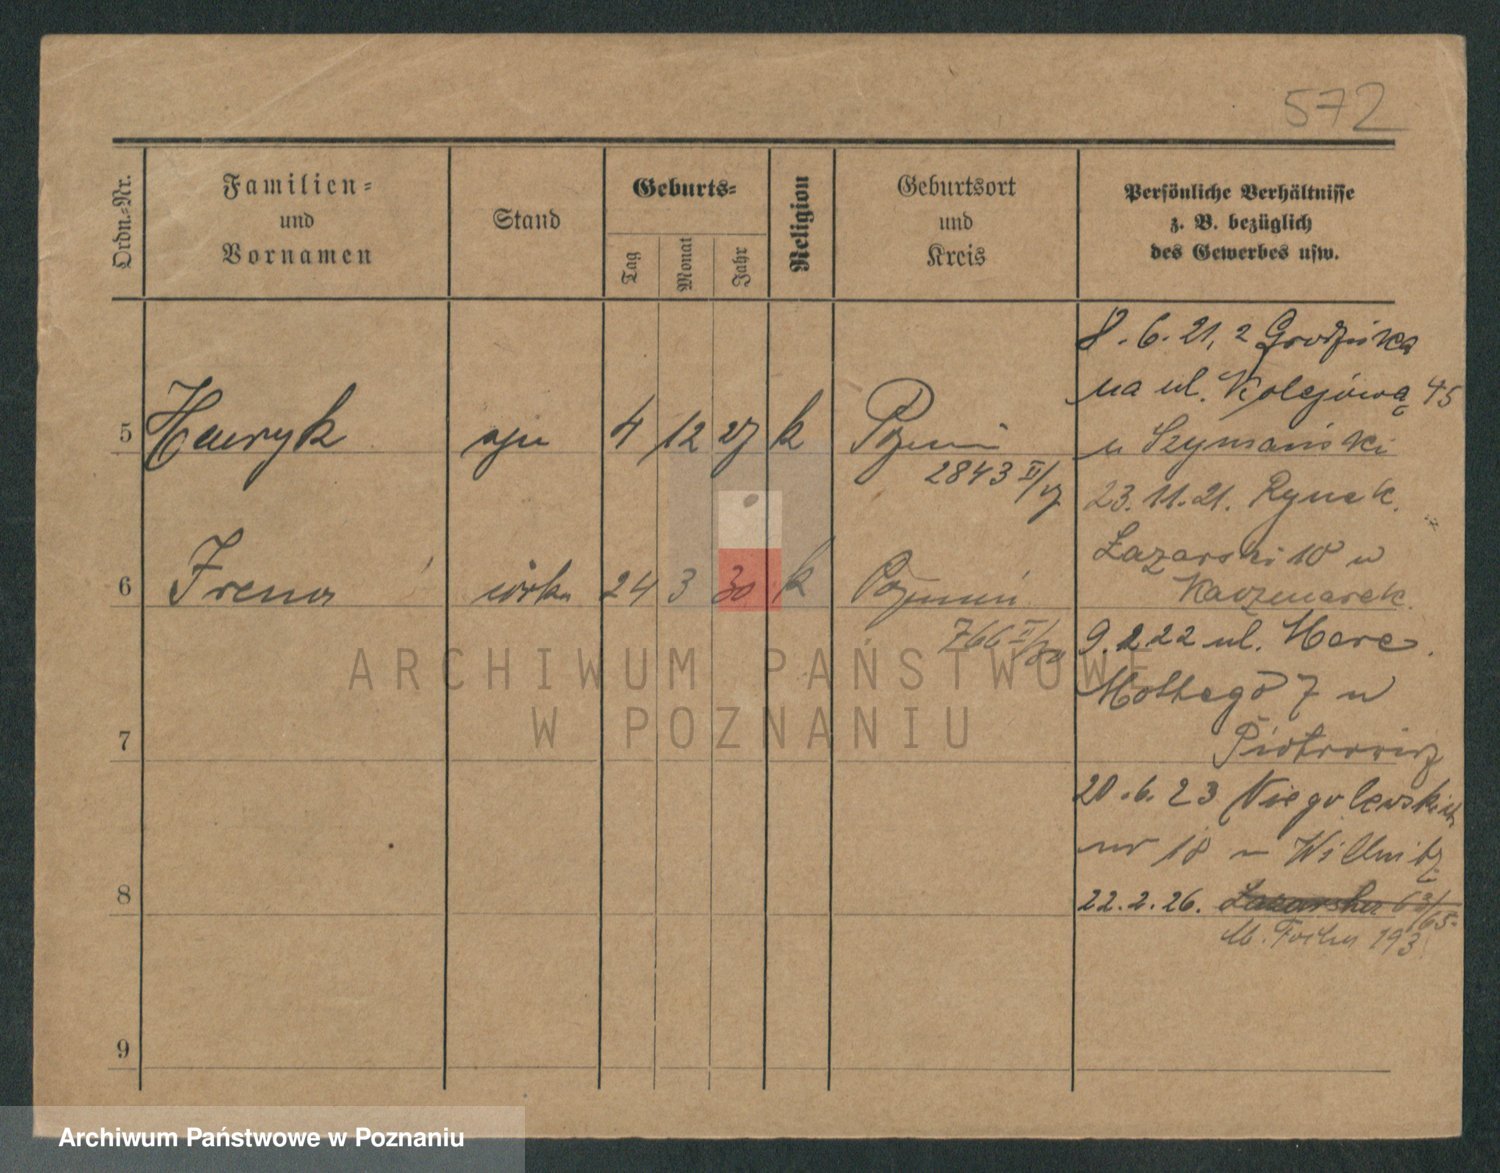 572
Ordn.-Nr.
Familien-
und
Vornamen
Stand
Geburts-
Tag
Monat
Jahr
Religion
Geburtsort
und
Kreis
Persönliche Verhältnisse
z. B. bezüglich
des Gewerbes usw.
8.6.21, z Grodziska
na ul. Kolejową 45
u Szymański
23.11.21. Rynek
Łazarski 10 u
Kaczmarek.
9.2.22 ul. Marc.
Mottego 7 u
Piotrowicz
20.6.23 Niegolewskich
nr 18 u Willnitz
22.2.26. Łazarska 63/65.
M. Focha 193
5 Henryk syn 4 12 27 k Poznań
2843 II/27
6 Irena córka 24 3 30 k Poznań
766 II/30
7
8
9
ARCHIWUM PAŃSTWOWE
W POZNANIU
Archiwum Państwowe w Poznaniu